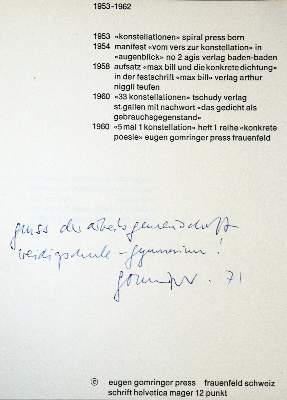 1953-1962
1953 «konstellationen» spiral press bern
1954 manifest «vom vers zur konstellation» in
«augenblick» no 2 agis verlag baden-baden
1958 aufsatz «max bill und die konkrete dichtung»
in der festschrift «max bill» verlag arthur
niggli teufen
1960 «33 konstellationen» tschudy verlag
st.gallen mit nachwort «das gedicht als
gebrauchsgegenstand»
1960 «5 mal 1 konstellation» heft 1 reihe «konkrete
poesie» eugen gomringer press frauenfeld
gruss der arbeitsgemeinschaft
weidigschule-gymnasium!
gomringer. 71
© eugen gomringer press frauenfeld schweiz
schrift helvetica mager 12 punkt